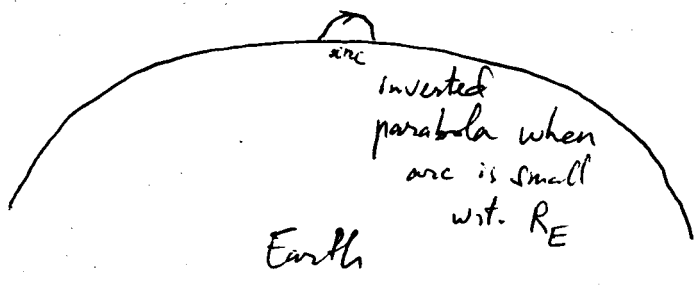 inverted
parabola when
arc is small
wrt. R_E
Earth